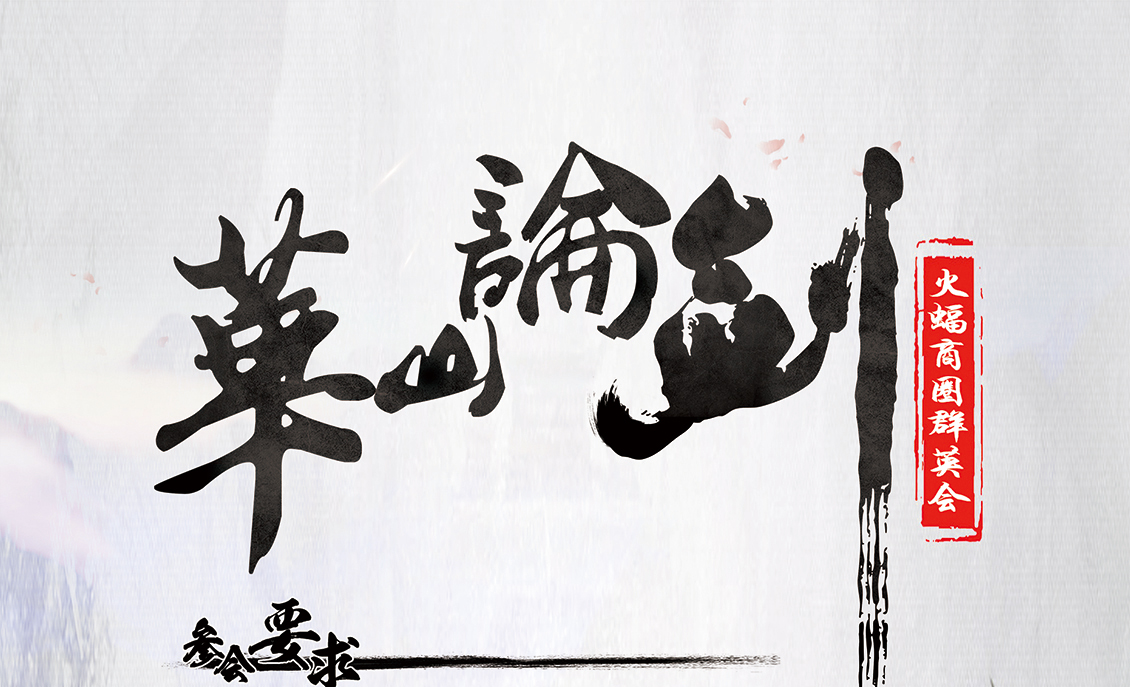 華山論剑
火蝠商圈群英会
参会要求